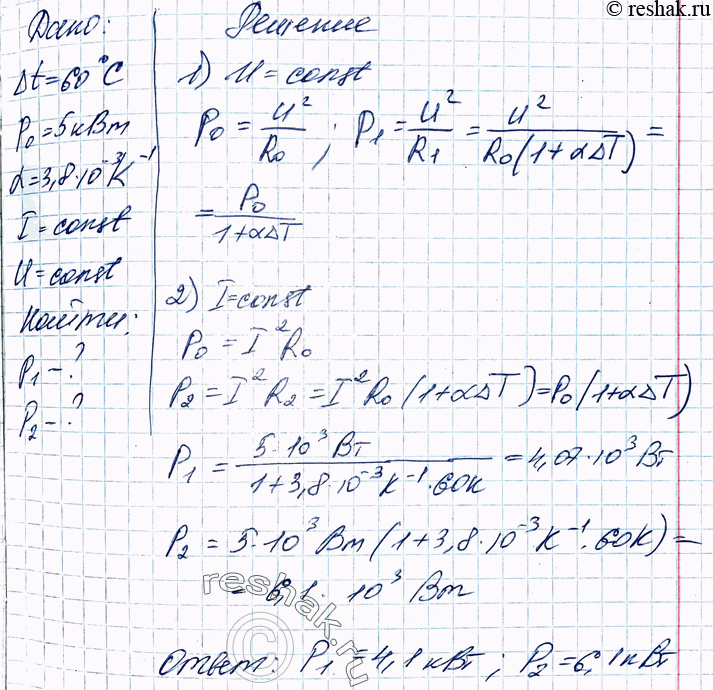 © reshak.ru
Дано:
Δt=60°C
P₀=5кВт
α=3,8·10⁻³K⁻¹
I=const
U=const
Найти:
P₁-?
P₂-?
Решение
1) U=const
P₀ = U²/R₀ ; P₁ = U²/R₁ = U²/R₀(1+αΔT) =
= P₀/1+αΔT
2) I=const
P₀ = I²R₀
P₂ = I²R₂ = I²R₀(1+αΔT)=P₀(1+αΔT)
P₁ = 5·10³Вт/1+3,8·10⁻³K⁻¹·60K = 4,07·10³Вт
P₂ = 5·10³Вт(1+3,8·10⁻³K⁻¹·60K)=
= 6,1·10³Вт
reshak.ru
©
Ответ: P₁=4,1кВт; P₂=6,1кВт